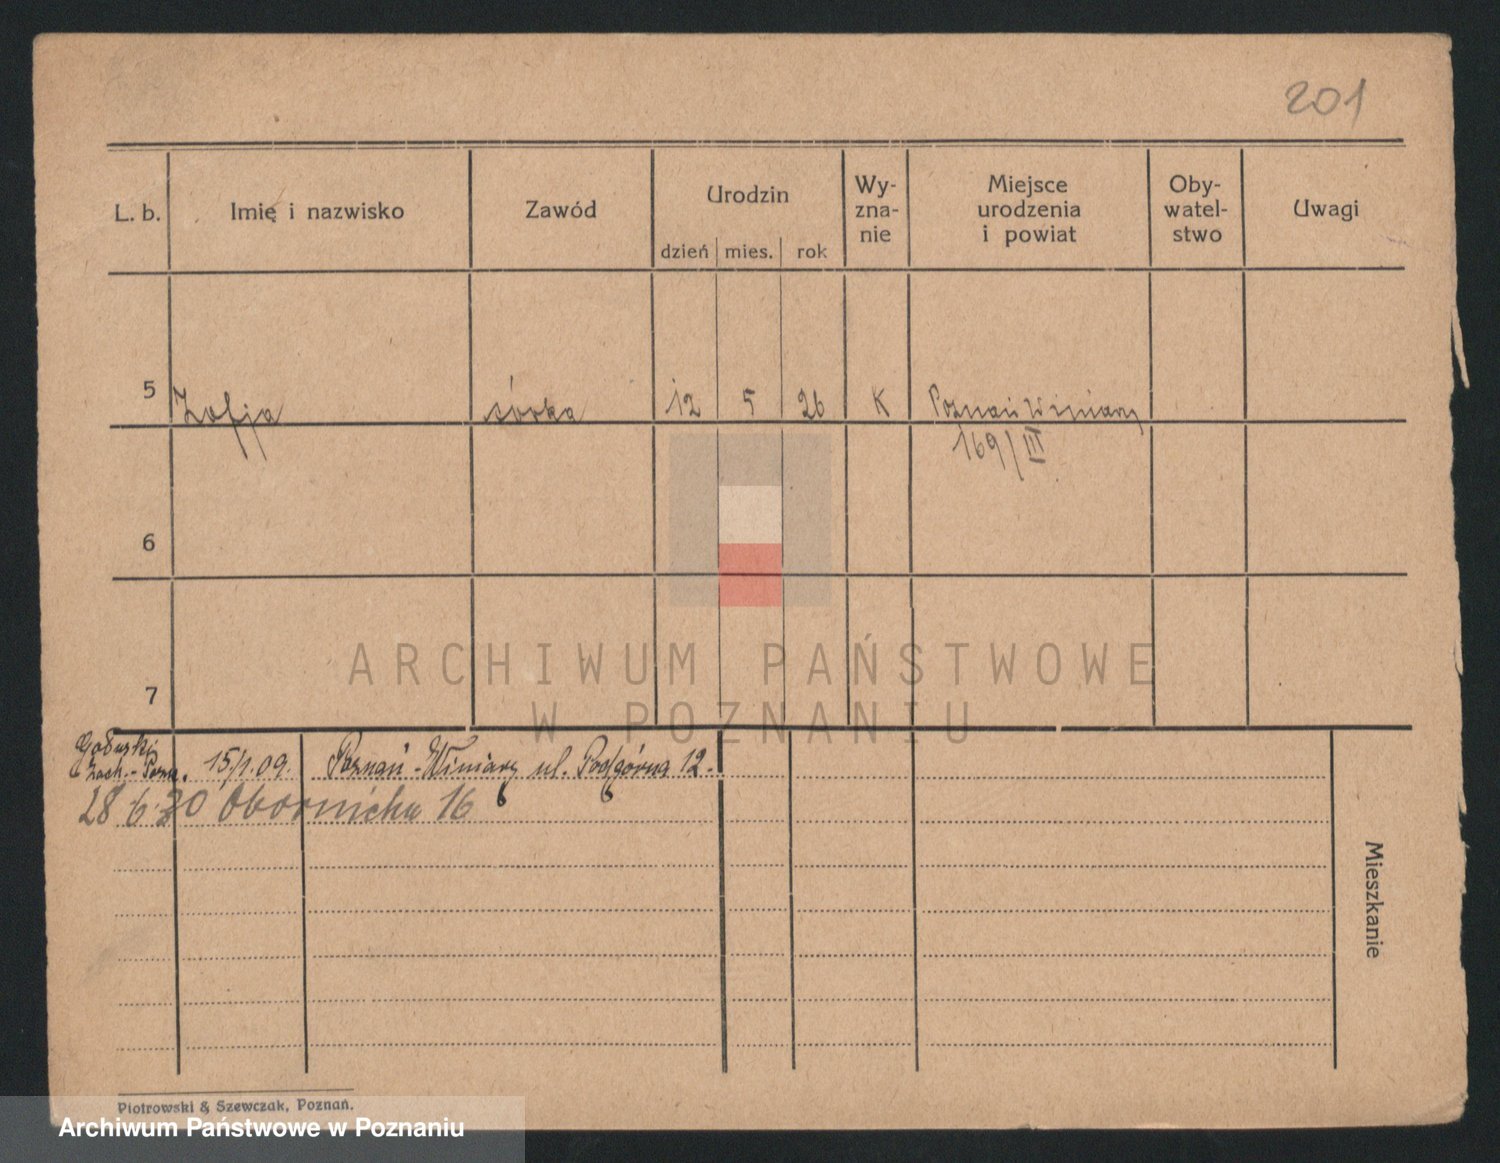 201
L. b. Imię i nazwisko Zawód Urodzin Wy-
zna-
nie Miejsce
urodzenia
i powiat Oby-
watel-
stwo Uwagi
dzień mies. rok
5 Zofja córka 12 5 26 K Poznań Winiary
169/III
6
7
ARCHIWUM PAŃSTWOWE
W POZNANIU
15/1.09. Poznań-Winiary ul. Podgórna 12.
28 6 30 Obornicka 16
Mieszkanie
Piotrowski & Szewczak, Poznań.
Archiwum Państwowe w Poznaniu